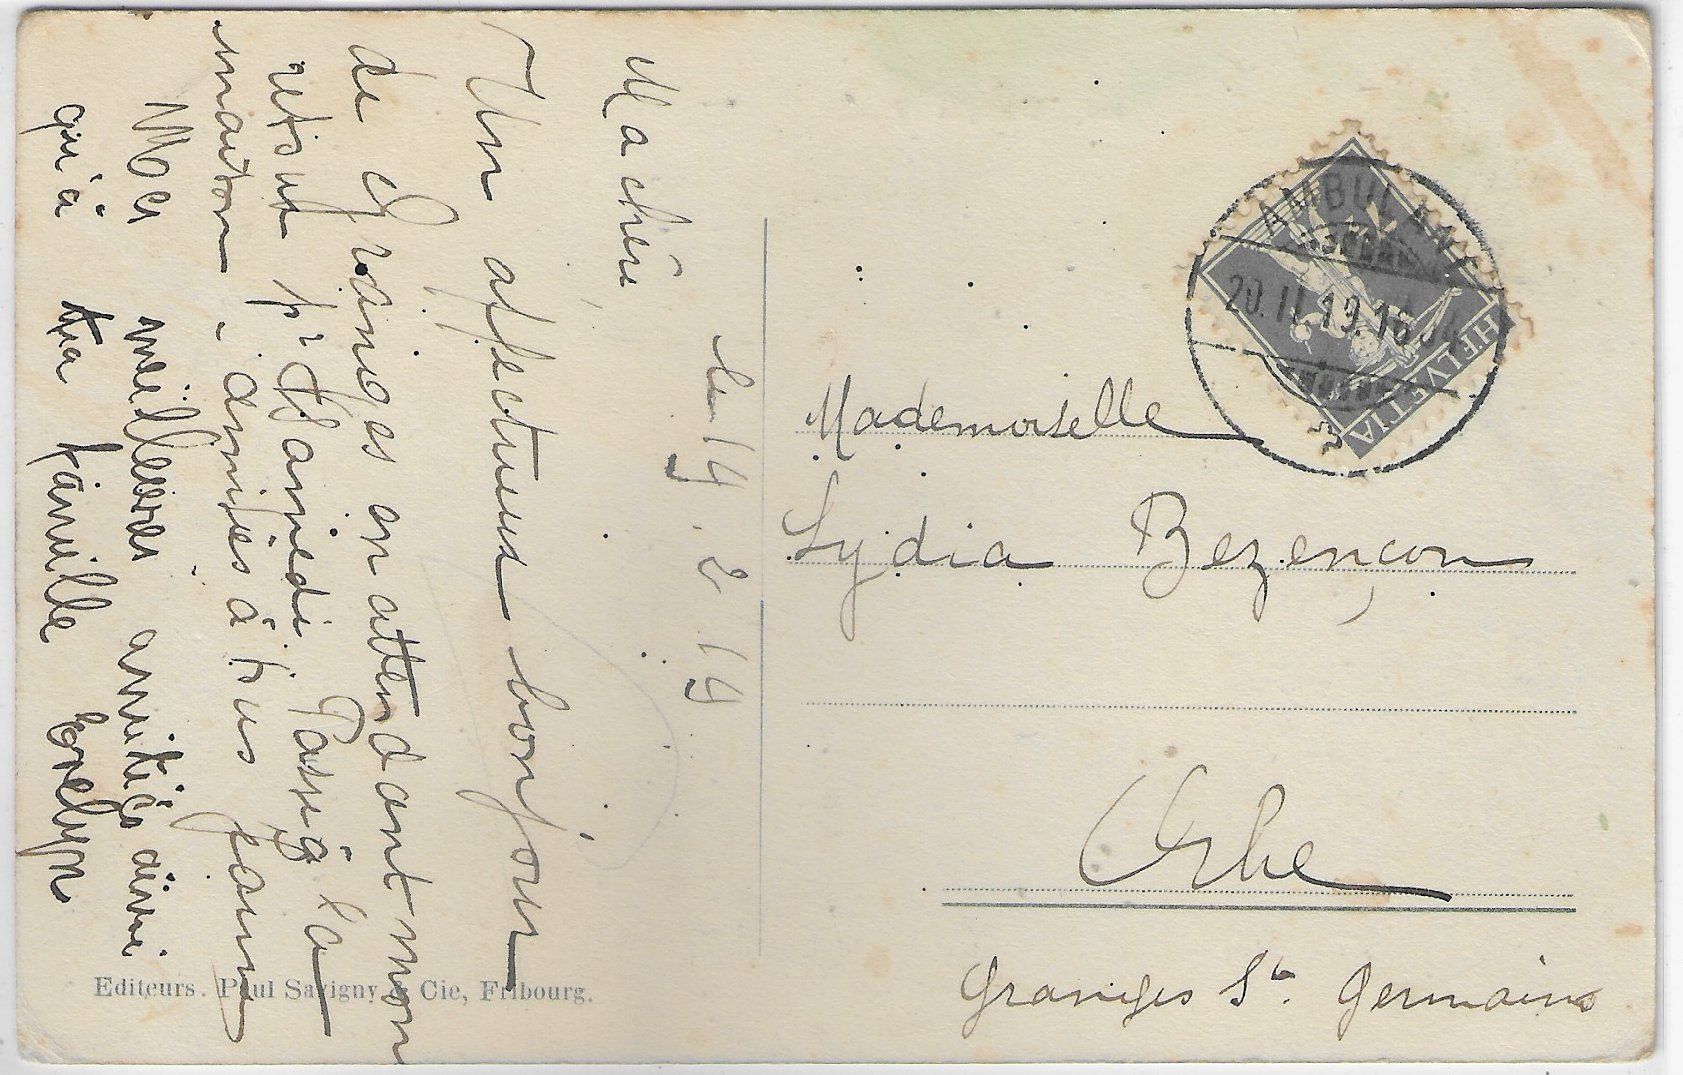 le 19.2.19
Ma chérie
Un affectueux bonjour
de Granges en attendant mon
retour pr Samedi. Passe à la
maison, amitiés à tous
Ma meilleures amitiés ainsi
qu'à ta famille Evelyn
Mademoiselle
Lydia Bezençon
Orbe
Granges St. Germain
AMBULANT
20.II.19.16
HELVETIA
Editeurs. Paul Savigny & Cie, Fribourg.